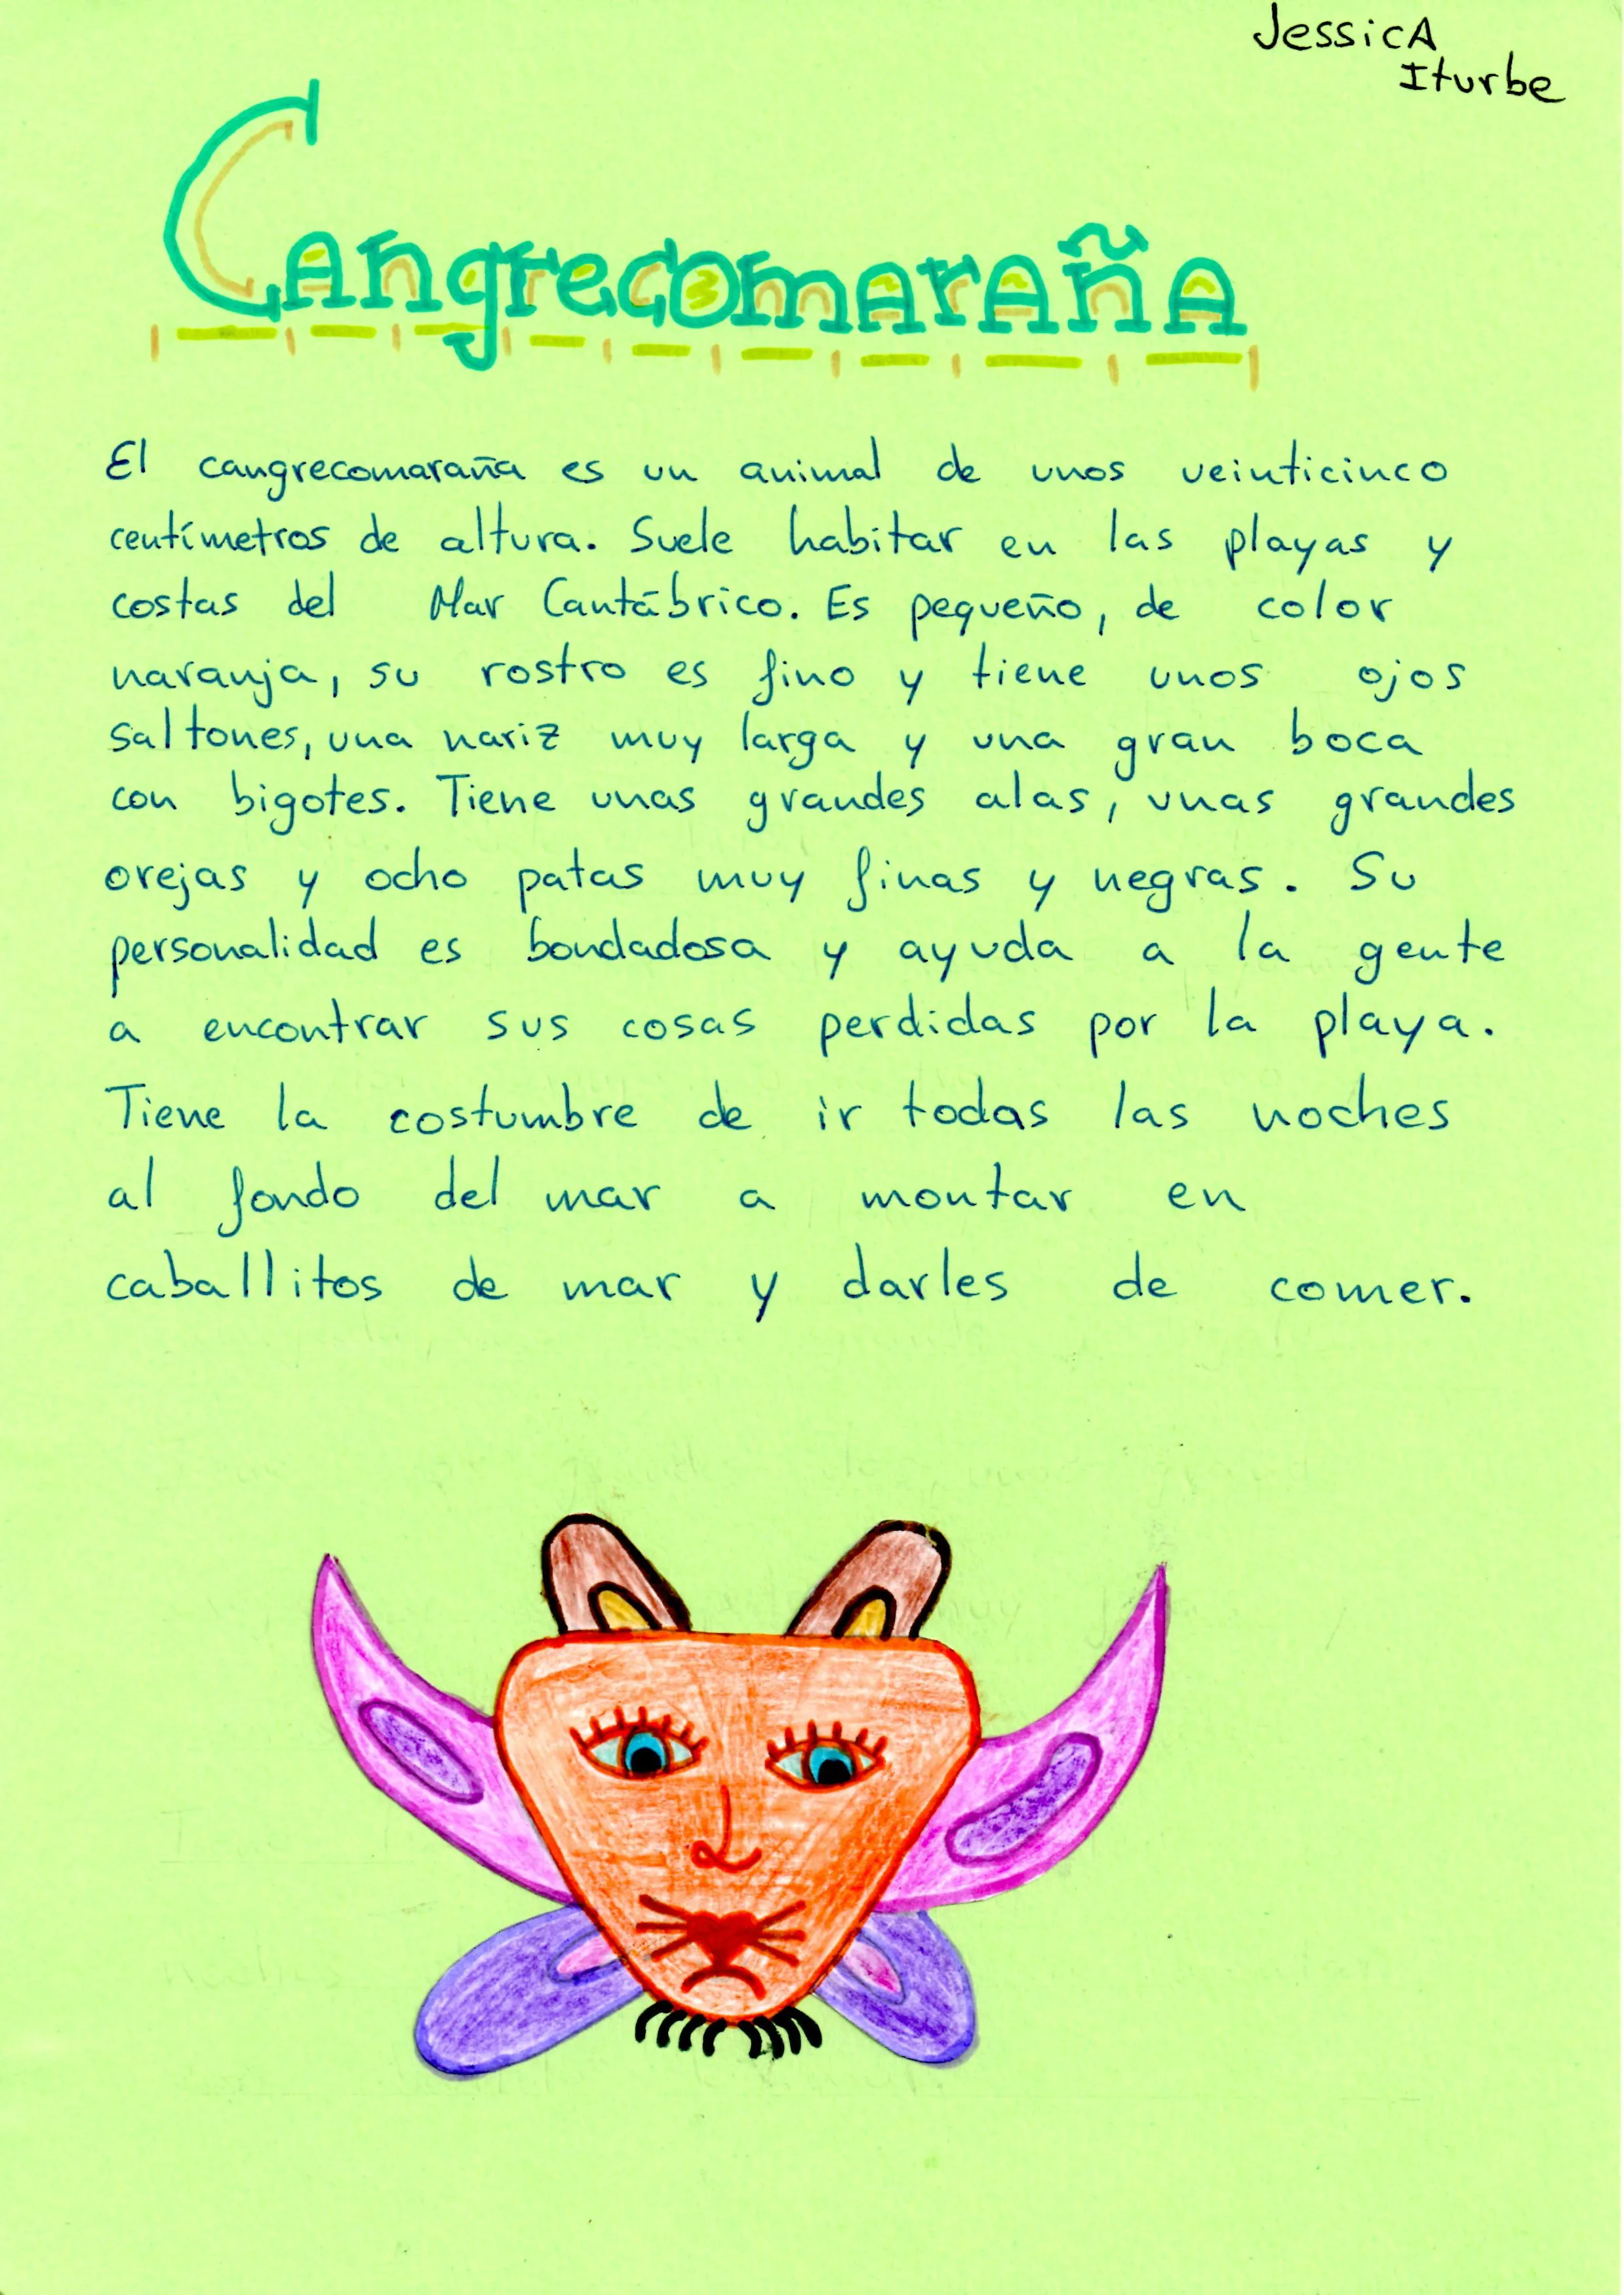 JessicA
Iturbe
Cangrecomaraña
El cangrecomaraña es un animal de unos veinticinco
centímetros de altura. Suele habitar en las playas y
costas del Mar Cantábrico. Es pequeño, de color
naranja, su rostro es fino y tiene unos ojos
saltones, una nariz muy larga y una gran boca
con bigotes. Tiene unas grandes alas, unas grandes
orejas y ocho patas muy finas y negras. Su
personalidad es bondadosa y ayuda a la gente
a encontrar sus cosas perdidas por la playa.
Tiene la costumbre de ir todas las noches
al fondo del mar a montar en
caballitos de mar y darles de comer.